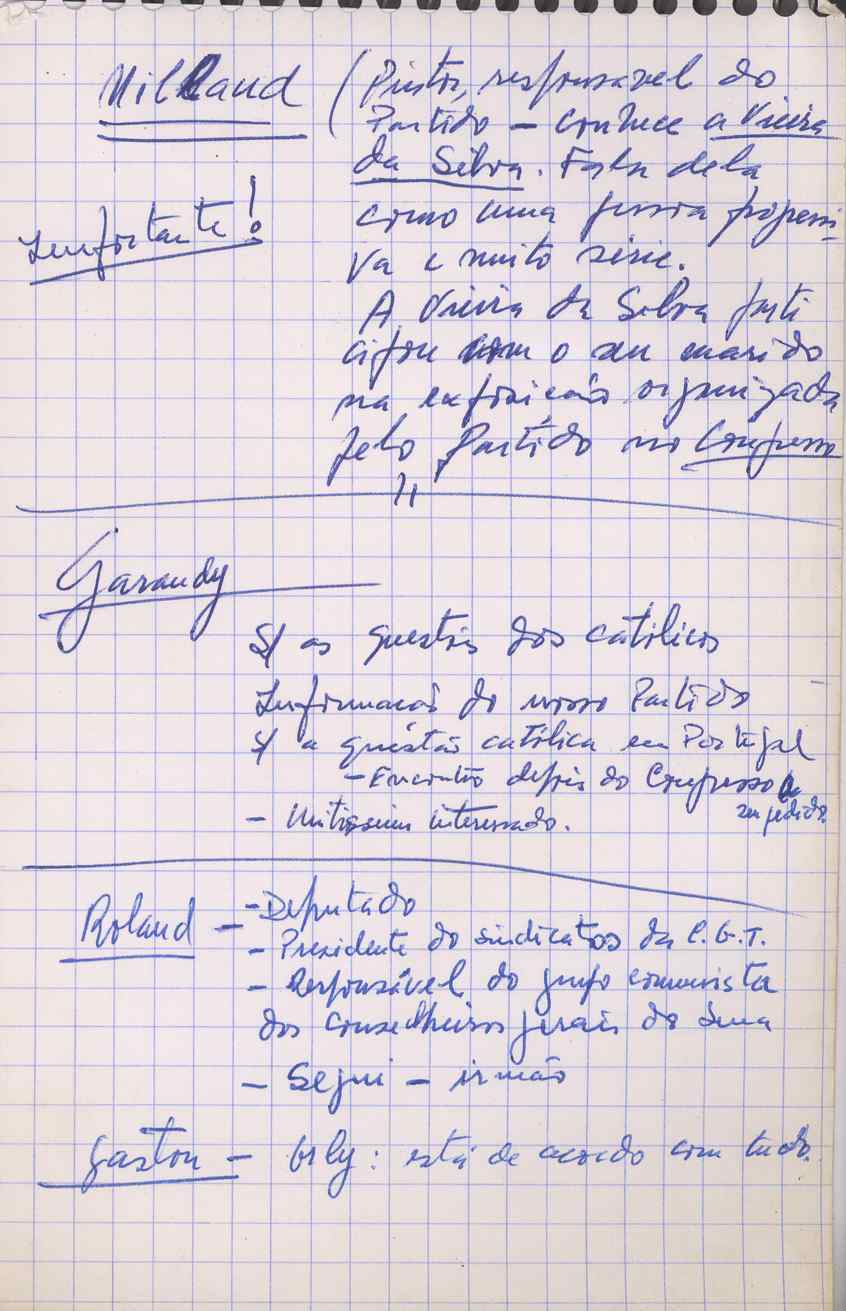 Milhaud (Pintor, responsável do
Partido — conhece a Vieira
da Silva. Fala dela
Importante!
como uma pessoa progressi-
va e muito séria.
A Vieira da Silva parti
cipou com o seu marido
na exposição organizada
pelo Partido no Congresso
Garaudy
S/ as questões dos católicos
Informação do nosso Partido
S/ a questão católica em Portugal
— Encontro depois do Congresso a
seu pedido.
— Muitíssimo interessado.
Roland — - Deputado
- Presidente do sindicatos da C.G.T.
- Responsável do grupo comunista
dos conselheiros gerais do Sena
— Segui — irmão
Gaston — : está de acordo com tudo.